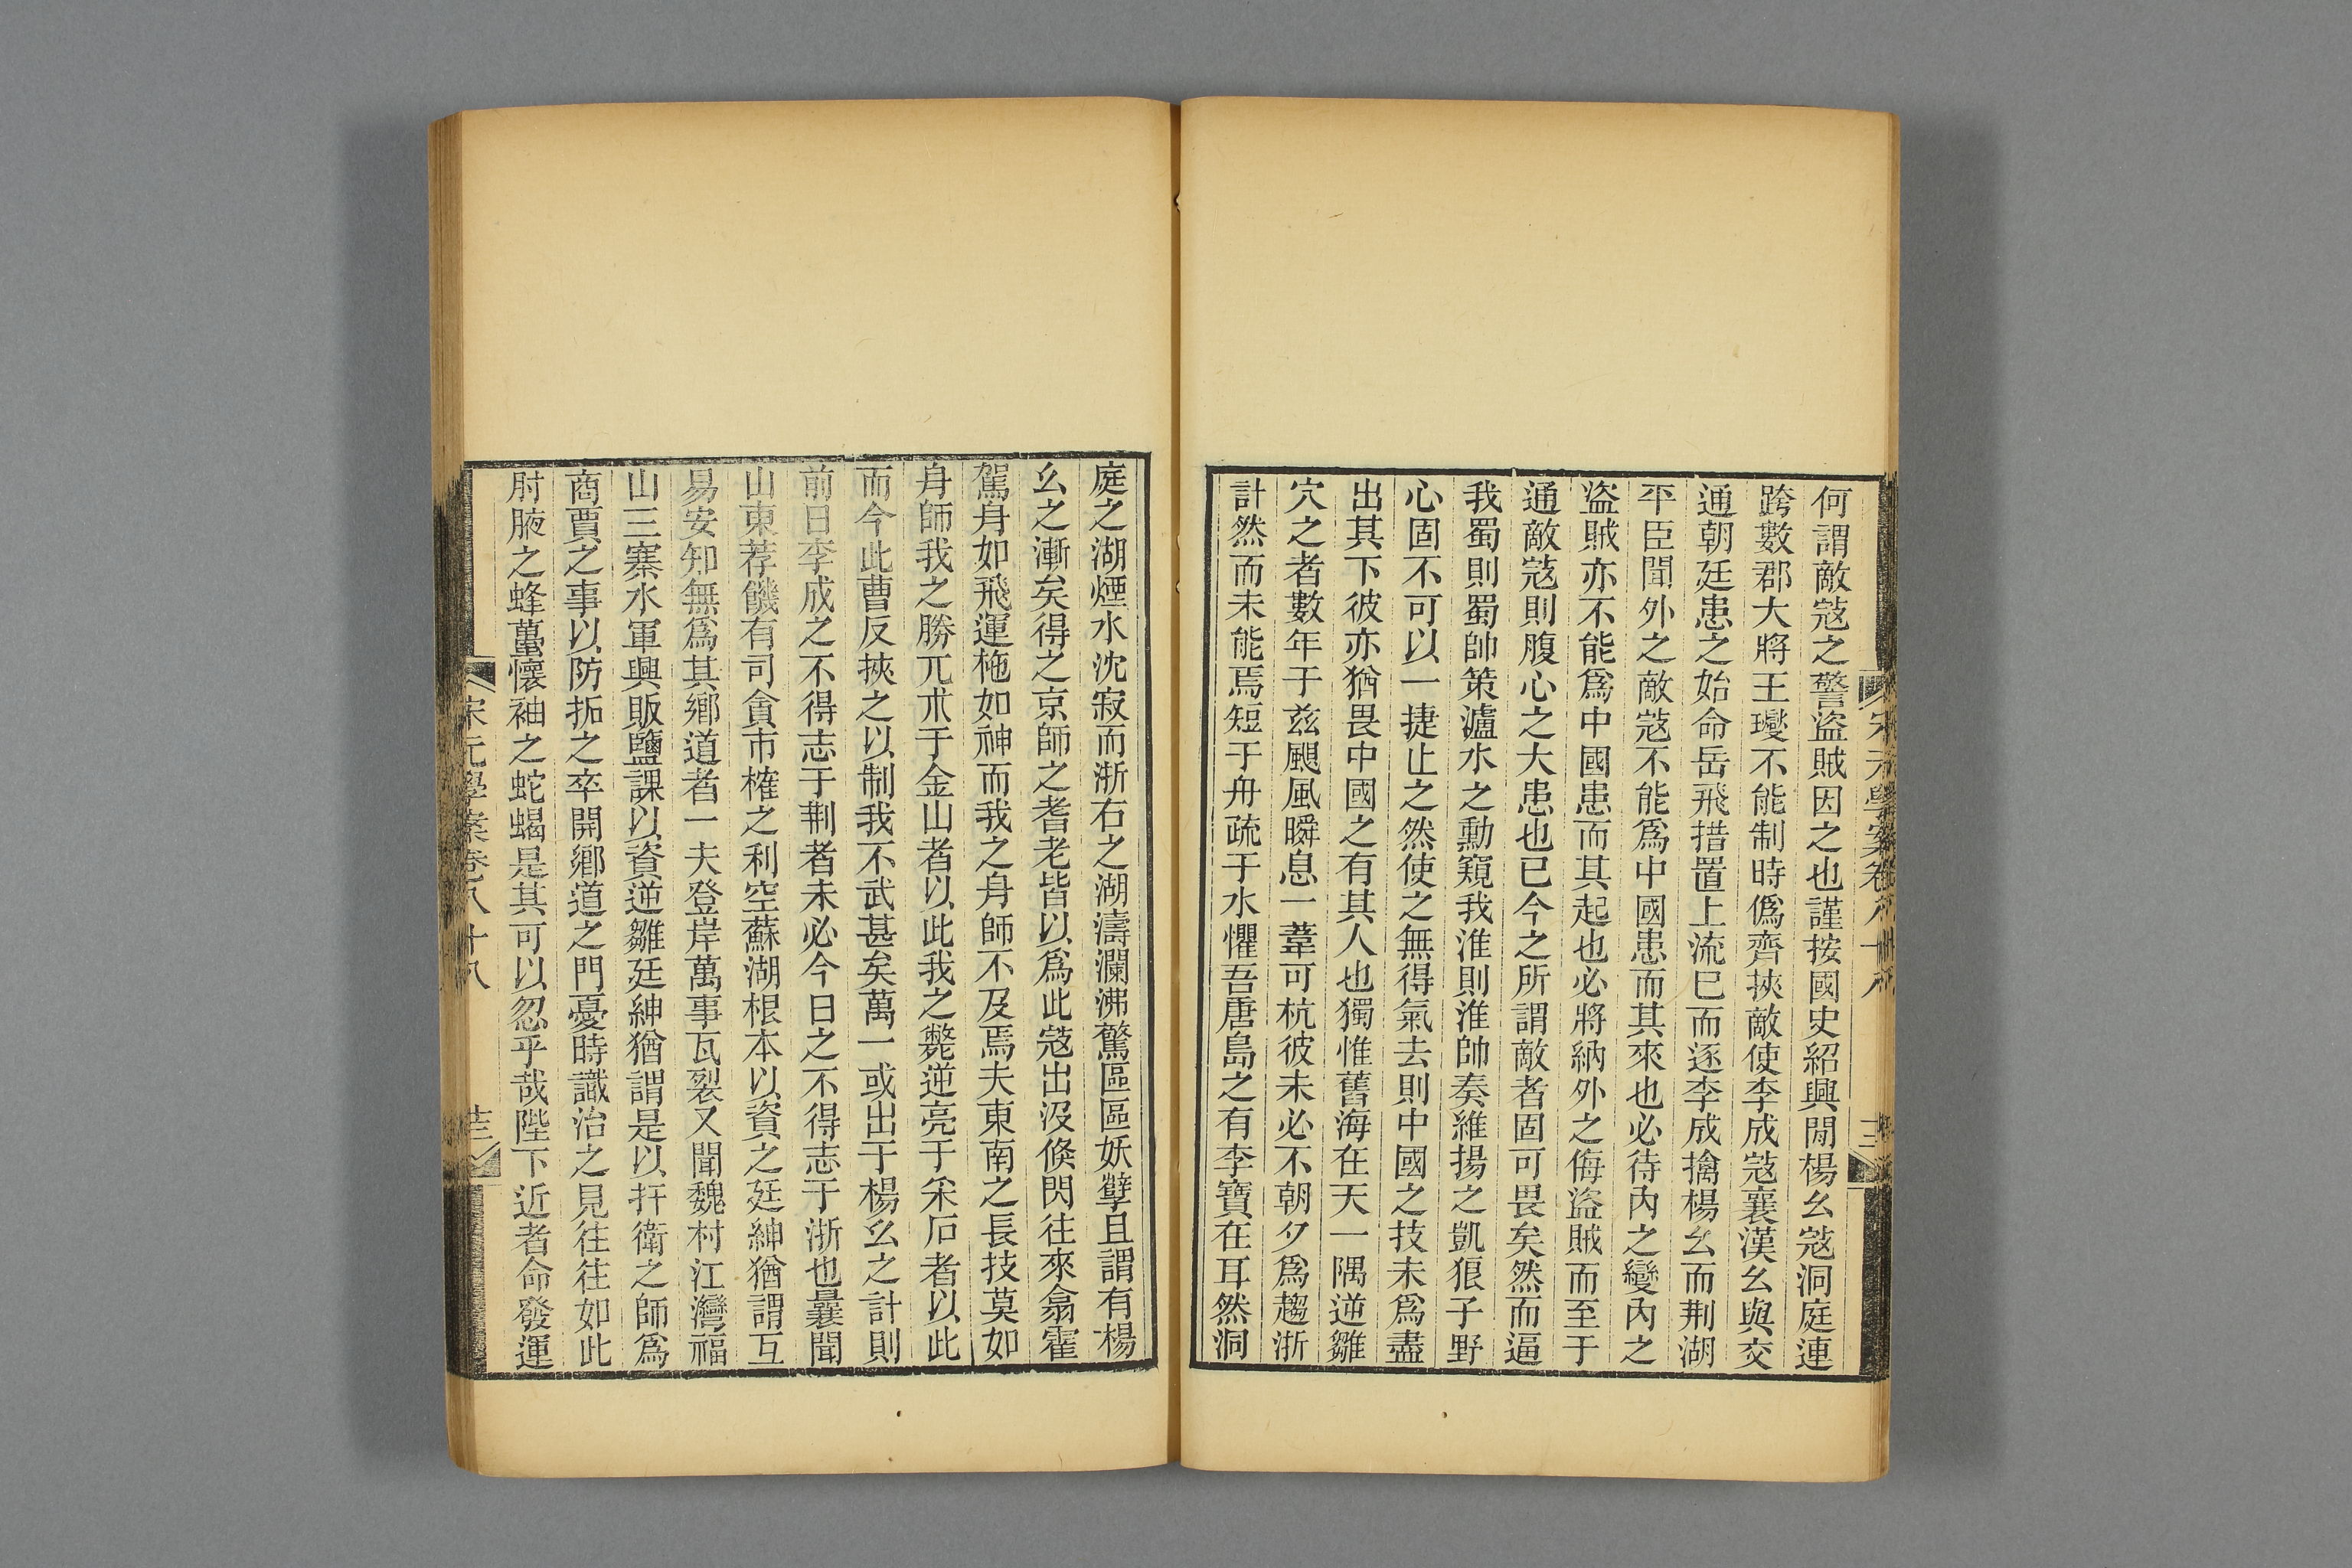 何謂敵寇之警盜賊因之也謹按國史紹興閒楊幺寇洞庭連
跨數郡大將王𤫉不能制時僞齊挾敵使李成寇襄漢幺與交
通朝廷患之始命岳飛措置上流巳而逐李成擒楊幺而荆湖
平臣聞外之敵寇不能爲中國患而其來也必待內之變內之
盜賊亦不能爲中國患而其起也必將納外之侮盜賊而至于
通敵寇則腹心之大患也已今之所謂敵者固可畏矣然而逼
我蜀則蜀帥策瀘水之勳窺我淮則淮帥奏維揚之凱狼子野
心固不可以一捷止之然使之無得氣去則中國之技未爲盡
出其下彼亦猶畏中國之有其人也獨惟舊海在天一隅逆雛
穴之者數年于茲颶風瞬息一葦可杭彼未必不朝夕爲趨浙
計然而未能焉短于舟疏于水懼吾唐島之有李寶在耳然洞
庭之湖煙水沈寂而浙右之湖濤瀾沸驚區區妖孽且謂有楊
幺之漸矣得之京師之耆老皆以爲此寇出沒倏閃往來翕霍
駕身如飛運柂如神而我之身師不及焉夫東南之長技莫如
身師我之勝兀朮于金山者以此我之斃逆亮于采石者以此
而今此曹反挾之以制我不武甚矣萬一或出于楊幺之計則
前日李成之不得志于荆者未必今日之不得志于浙也曩聞
山東荐饑有司貪市榷之利空蘇湖根本以資之廷紳猶謂互
易安知無爲其鄉道者一夫登岸萬事瓦裂又聞魏村江灣福
山三寨水軍興販鹽課以資逆雛廷紳猶謂是以扞衛之師爲
商賈之事以防拓之卒開鄉道之門憂時識治之見往往如此
肘腋之蜂蠆懷袖之蛇蝎是其可以忽乎哉陛下近者命發運
宋元學案卷八十八